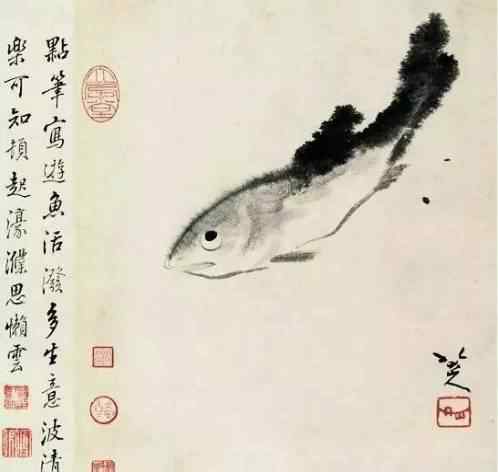 八大山人
點筆寫遊魚活潑多生意波清
樂可知頓起濠濮思懶雲